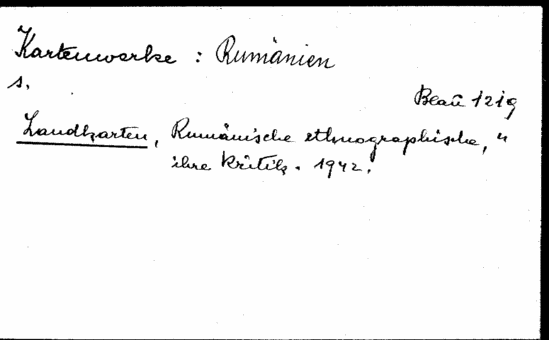 Kartenwerke : Rumänien
s.
Beaū 1219
Landkarten, Rumänische ethnographische, "
ihre Kritik. 1942.